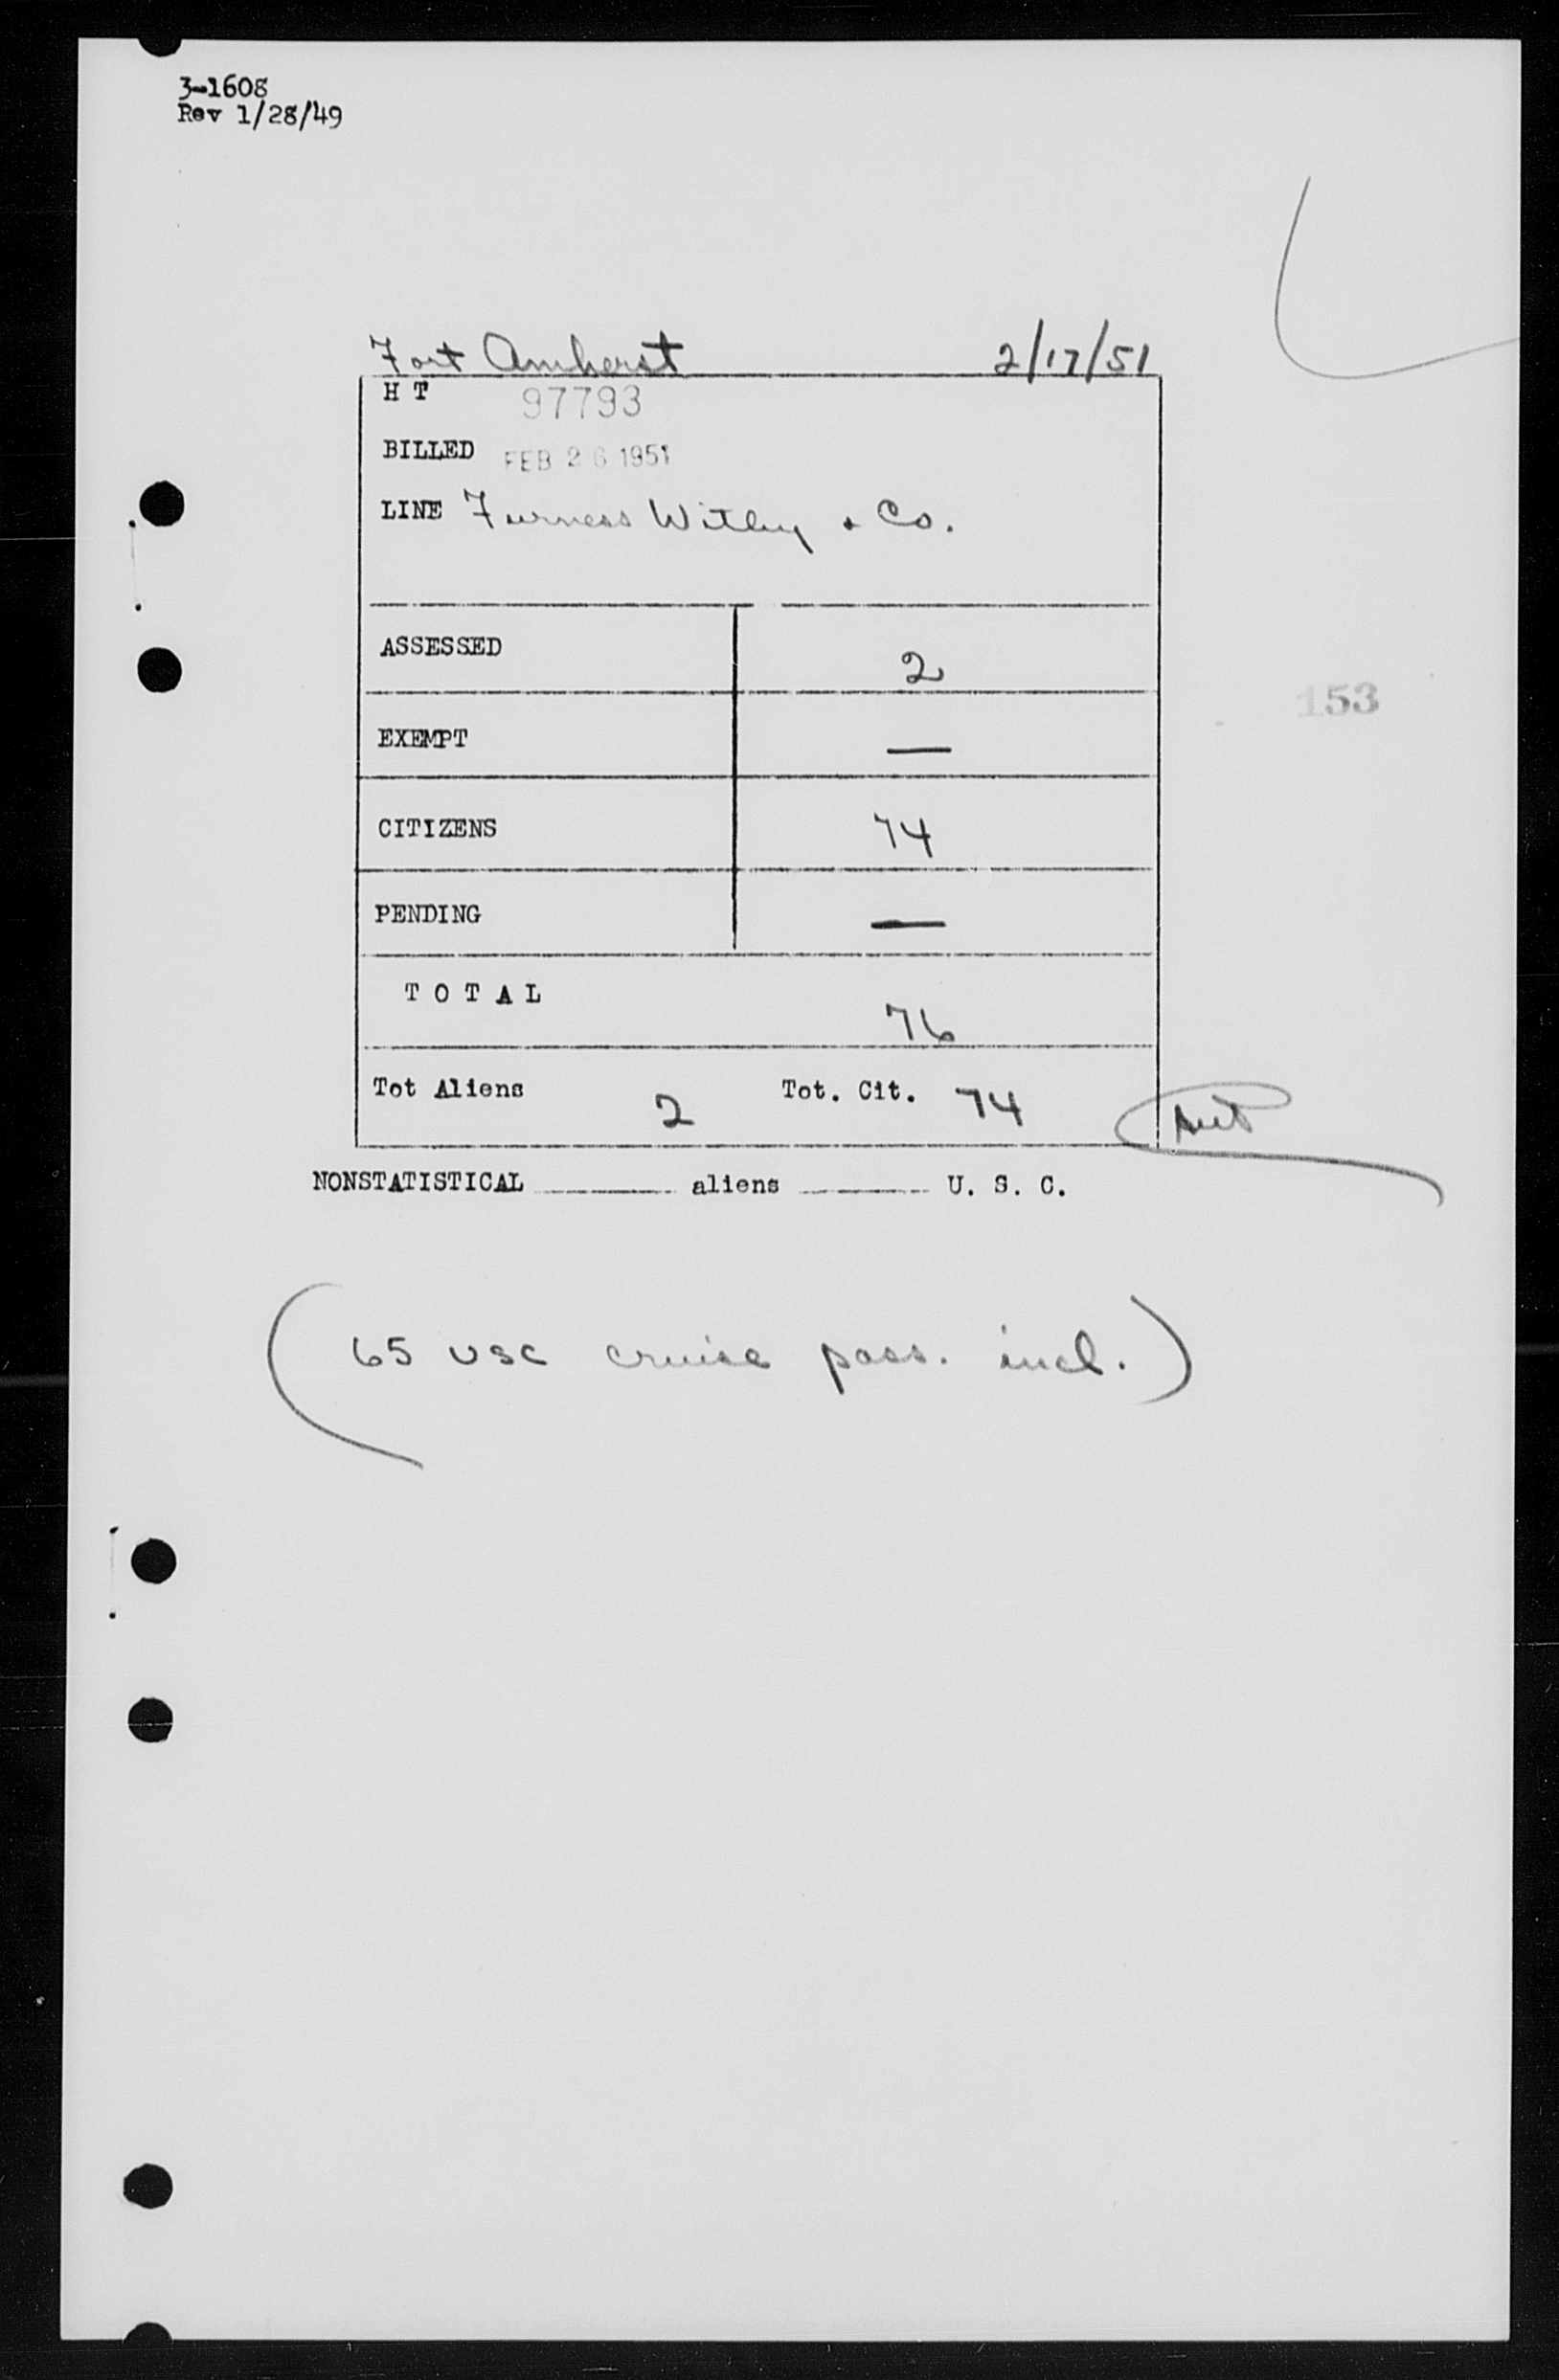 3-1608
Rev 1/28/49
Fort Amherst 2/17/51
H T 97793
BILLED FEB 26 1951
LINE Furness Withy & Co.
ASSESSED 2
153
EXEMPT —
CITIZENS 74
PENDING —
T O T A L 76
Tot Aliens 2 Tot. Cit. 74
NONSTATISTICAL ______ aliens ______ U. S. C.
(65 USC cruise pass. incl.)